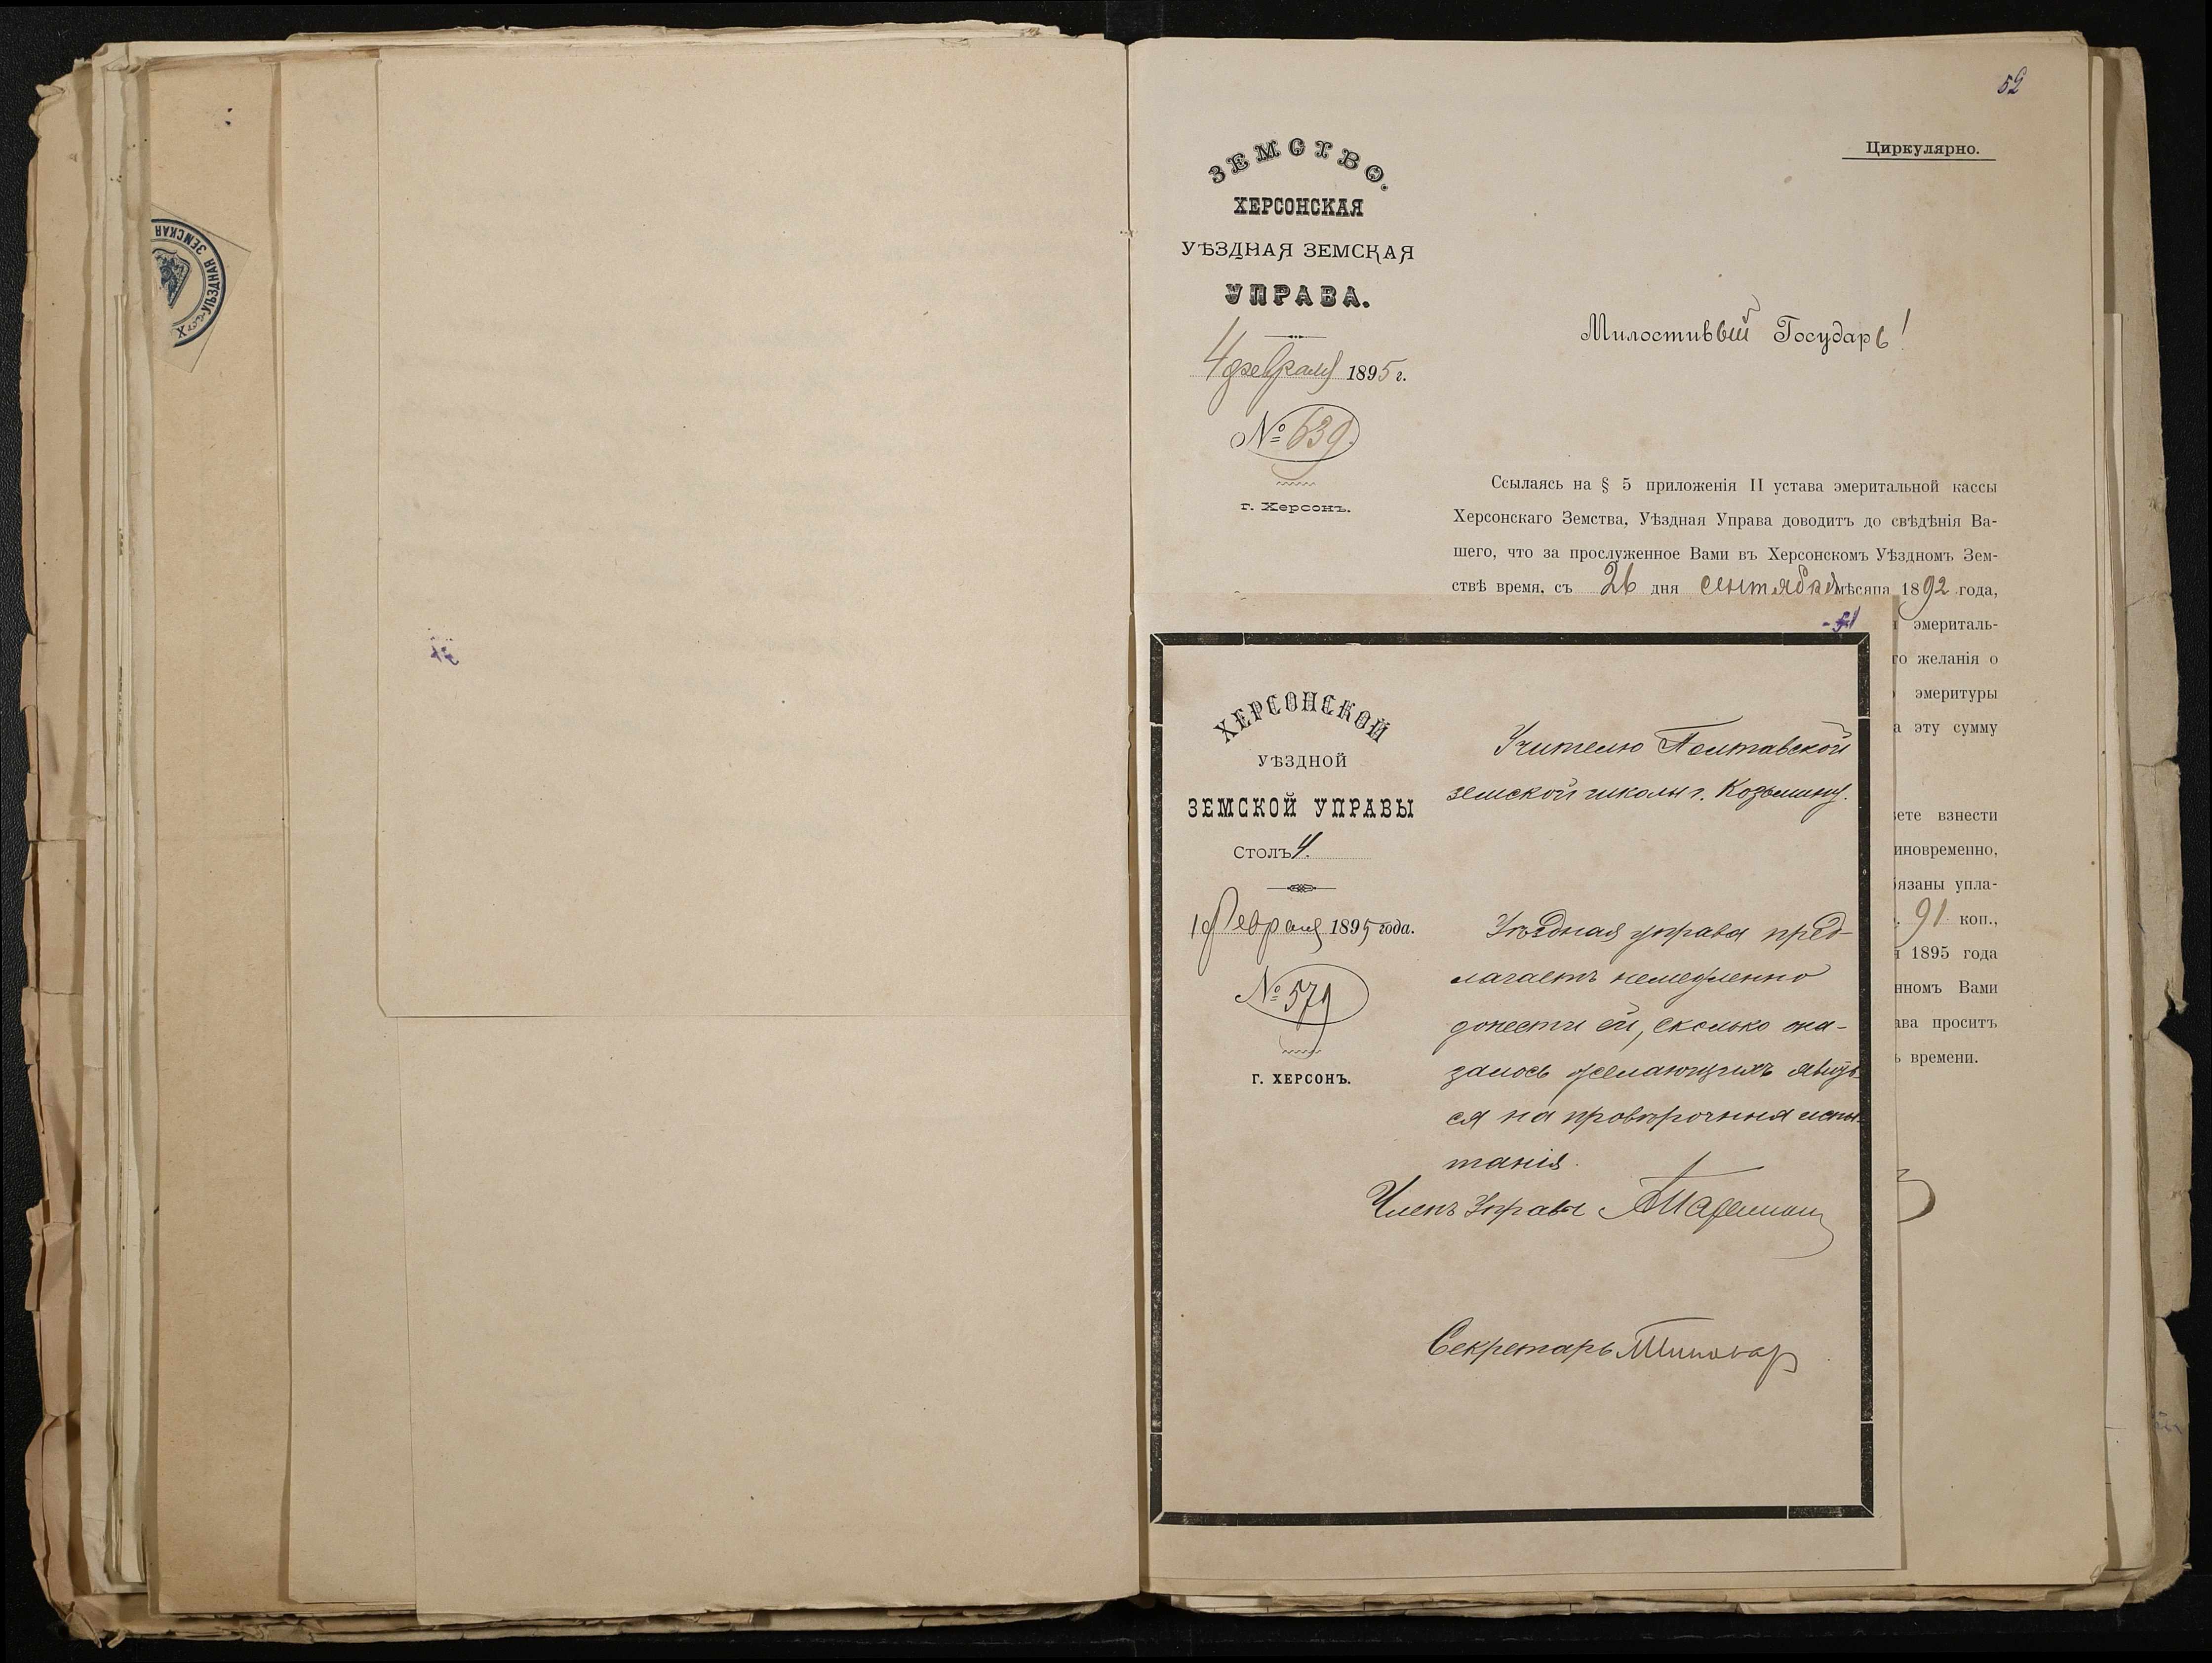 52
Циркулярно.
ЗЕМСТВО.
ХЕРСОНСКАЯ
УѢЗДНАЯ ЗЕМСКАЯ
УПРАВА.
4 февраля 1895 г.
№ 639.
г. Херсонъ.
Милостивый Государь!
Ссылаясь на § 5 приложенія II устава эмеритальной кассы
Херсонскаго Земства, Уѣздная Управа доводитъ до свѣдѣнія Ва-
шего, что за прослуженное Вами въ Херсонскомъ Уѣздномъ Зем-
ствѣ время, съ 26 дня сентября мѣсяца 1892 года,
эмериталь-
го желанія о
эмеритуры
а эту сумму
ете взнести
иновременно,
язаны упла-
91 коп.,
1895 года
нномъ Вами
ава проситъ
ь времени.
УѢЗДНАЯ ЗЕМСКАЯ
51
ХЕРСОНСКОЙ
УѢЗДНОЙ
ЗЕМСКОЙ УПРАВЫ
Столъ 4.
1 февраля 1895 года.
№ 579
Г. ХЕРСОНЪ.
Учителю Полтавской
земской школы г. Козьмину.
Уѣздная управа пред-
лагаетъ немедленно
донести ей, сколько ока-
залось желающихъ явить-
ся на провѣрочныя испы-
танія.
Членъ Управы
Секретарь